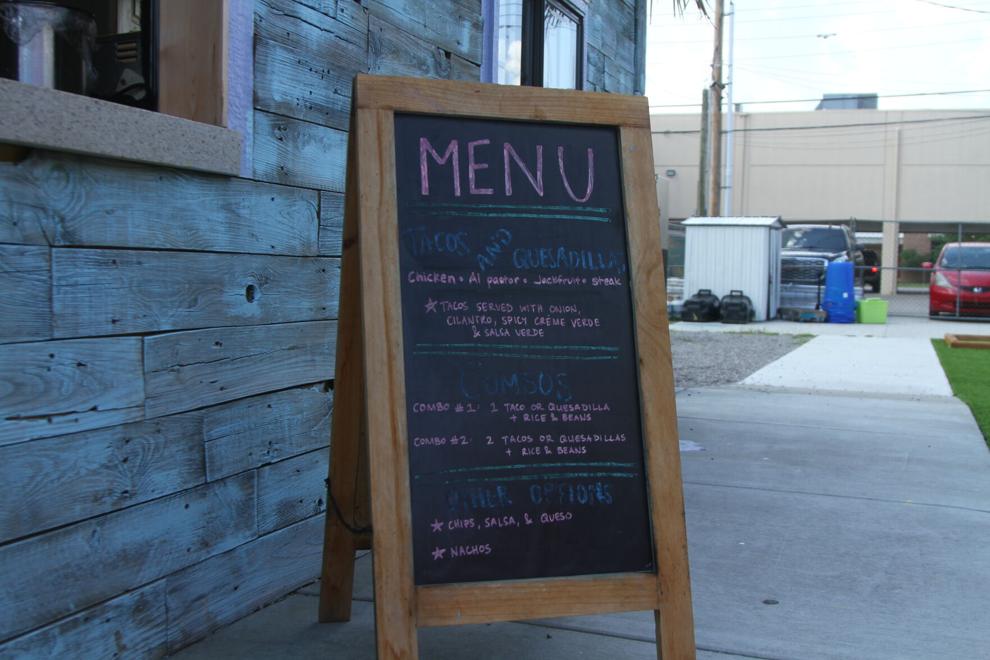 MENU
TACOS AND QUESADILLAS
Chicken • Al pastor • Jackfruit • steak
★ TACOS SERVED WITH ONION,
CILANTRO, SPICY CRÉME VERDE
& SALSA VERDE
COMBOS
COMBO #1: 1 TACO OR QUESADILLA
+ RICE & BEANS
COMBO #2: 2 TACOS OR QUESADILLAS
+ RICE & BEANS
OTHER OPTIONS
★ CHIPS, SALSA, & QUESO
★ NACHOS